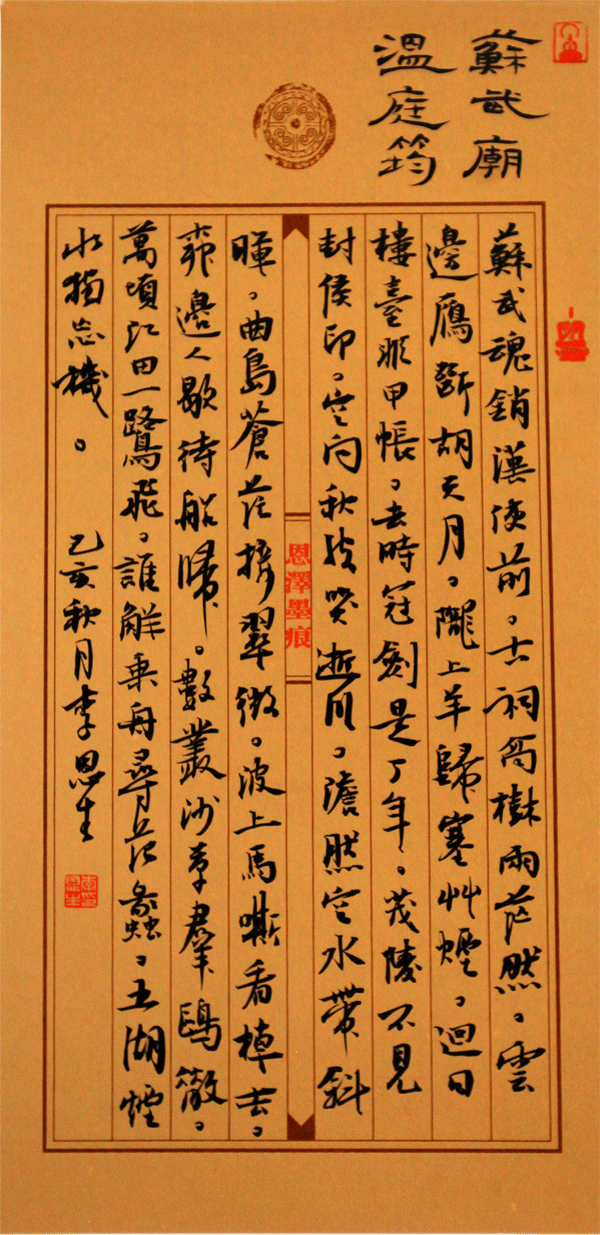 蘇武廟
溫庭筠
蘇武魂銷漢使前。古祠高樹兩茫然。雲
邊鴈斷胡天月。隴上羊歸塞艸煙。迴日
樓臺非甲帳。去時冠劍是丁年。茂陵不見
封侯印。空向秋波哭逝川。澹然空水帶斜
恩澤墨痕
暉。曲島蒼茫接翠微。波上馬嘶看棹去。
柳邊人歇待船歸。數叢沙草羣鷗散。
萬頃江田一鷺飛。誰解乘舟尋范蠡。五湖煙
水獨忘機。 己亥秋月李恩生